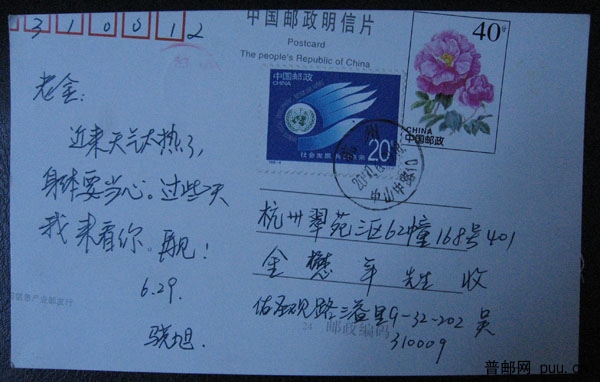 310012
中国邮政明信片
Postcard
The people's Republic of China
40分
CHINA
中国邮政
中国邮政
CHINA
20分
老金:
近来天气太热了,
身体要当心。过些天
我来看你。再见!
6.29.
骁旭
杭州翠苑三区62幢168号401
金懋年先生收
佑圣观路三益里9-32-202 吴
310009
24 邮政编码
普邮网 puu.c